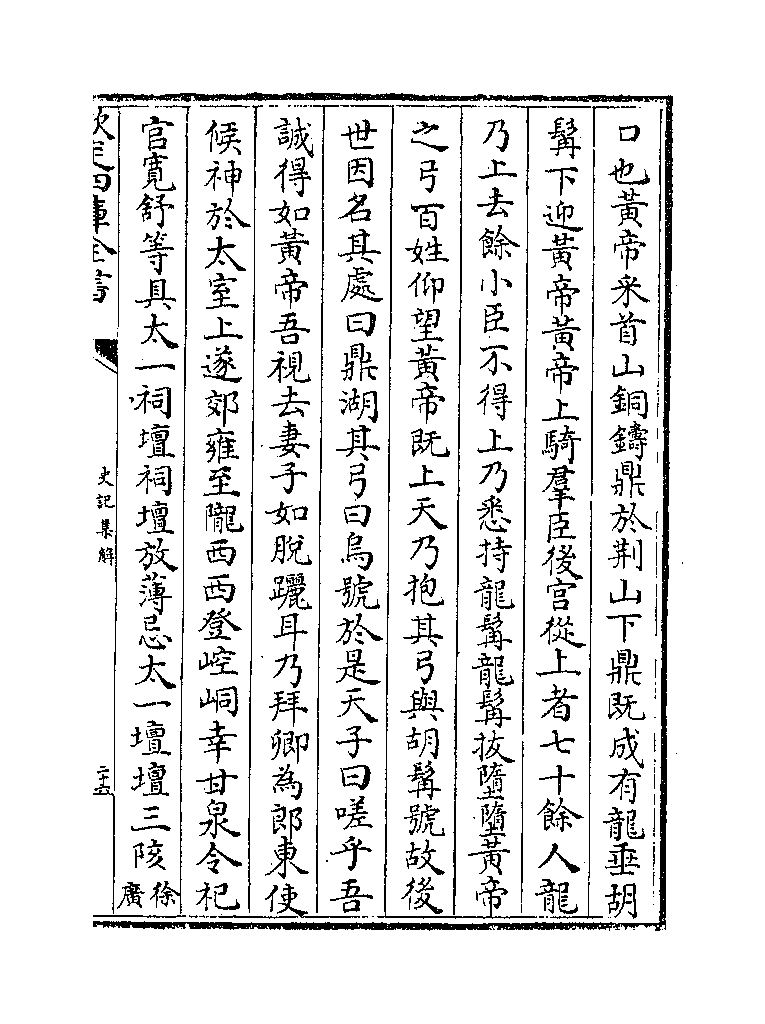 口也黃帝采首山銅鑄鼎於荆山下鼎既成有龍垂胡
髯下迎黃帝黃帝上騎羣臣後宫從上者七十餘人龍
乃上去餘小臣不得上乃悉持龍髯龍髯拔墮墮黃帝
之弓百姓仰望黃帝既上天乃抱其弓與胡髯號故後
世因名其處曰鼎湖其弓曰烏號於是天子曰嗟乎吾
誠得如黃帝吾視去妻子如脫躧耳乃拜卿為郎東使
候神於太室上遂郊雍至隴西西登崆峒幸甘泉令祀
官寬舒等具太一祠壇祠壇放薄忌太一壇壇三陔徐
廣
欽定四庫全書
史記集解
二十五